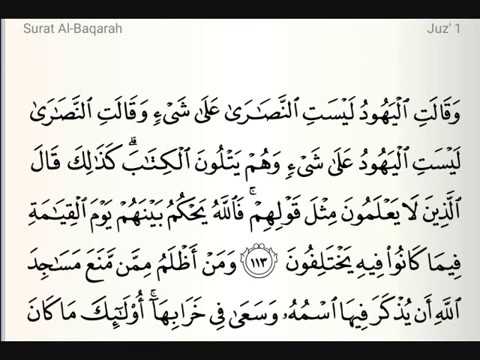 Surat Al-Baqarah Juz' 1
وَقَالَتِ الْيَهُودُ لَيْسَتِ النَّصَارَىٰ عَلَىٰ شَيْءٍ وَقَالَتِ النَّصَارَىٰ
لَيْسَتِ الْيَهُودُ عَلَىٰ شَيْءٍ وَهُمْ يَتْلُونَ الْكِتَابَ ۗ كَذَٰلِكَ قَالَ
الَّذِينَ لَا يَعْلَمُونَ مِثْلَ قَوْلِهِمْ ۚ فَاللَّهُ يَحْكُمُ بَيْنَهُمْ يَوْمَ الْقِيَامَةِ
فِيمَا كَانُوا فِيهِ يَخْتَلِفُونَ ١١٣ وَمَنْ أَظْلَمُ مِمَّن مَّنَعَ مَسَاجِدَ
اللَّهِ أَن يُذْكَرَ فِيهَا اسْمُهُ وَسَعَىٰ فِي خَرَابِهَا ۚ أُولَٰئِكَ مَا كَانَ